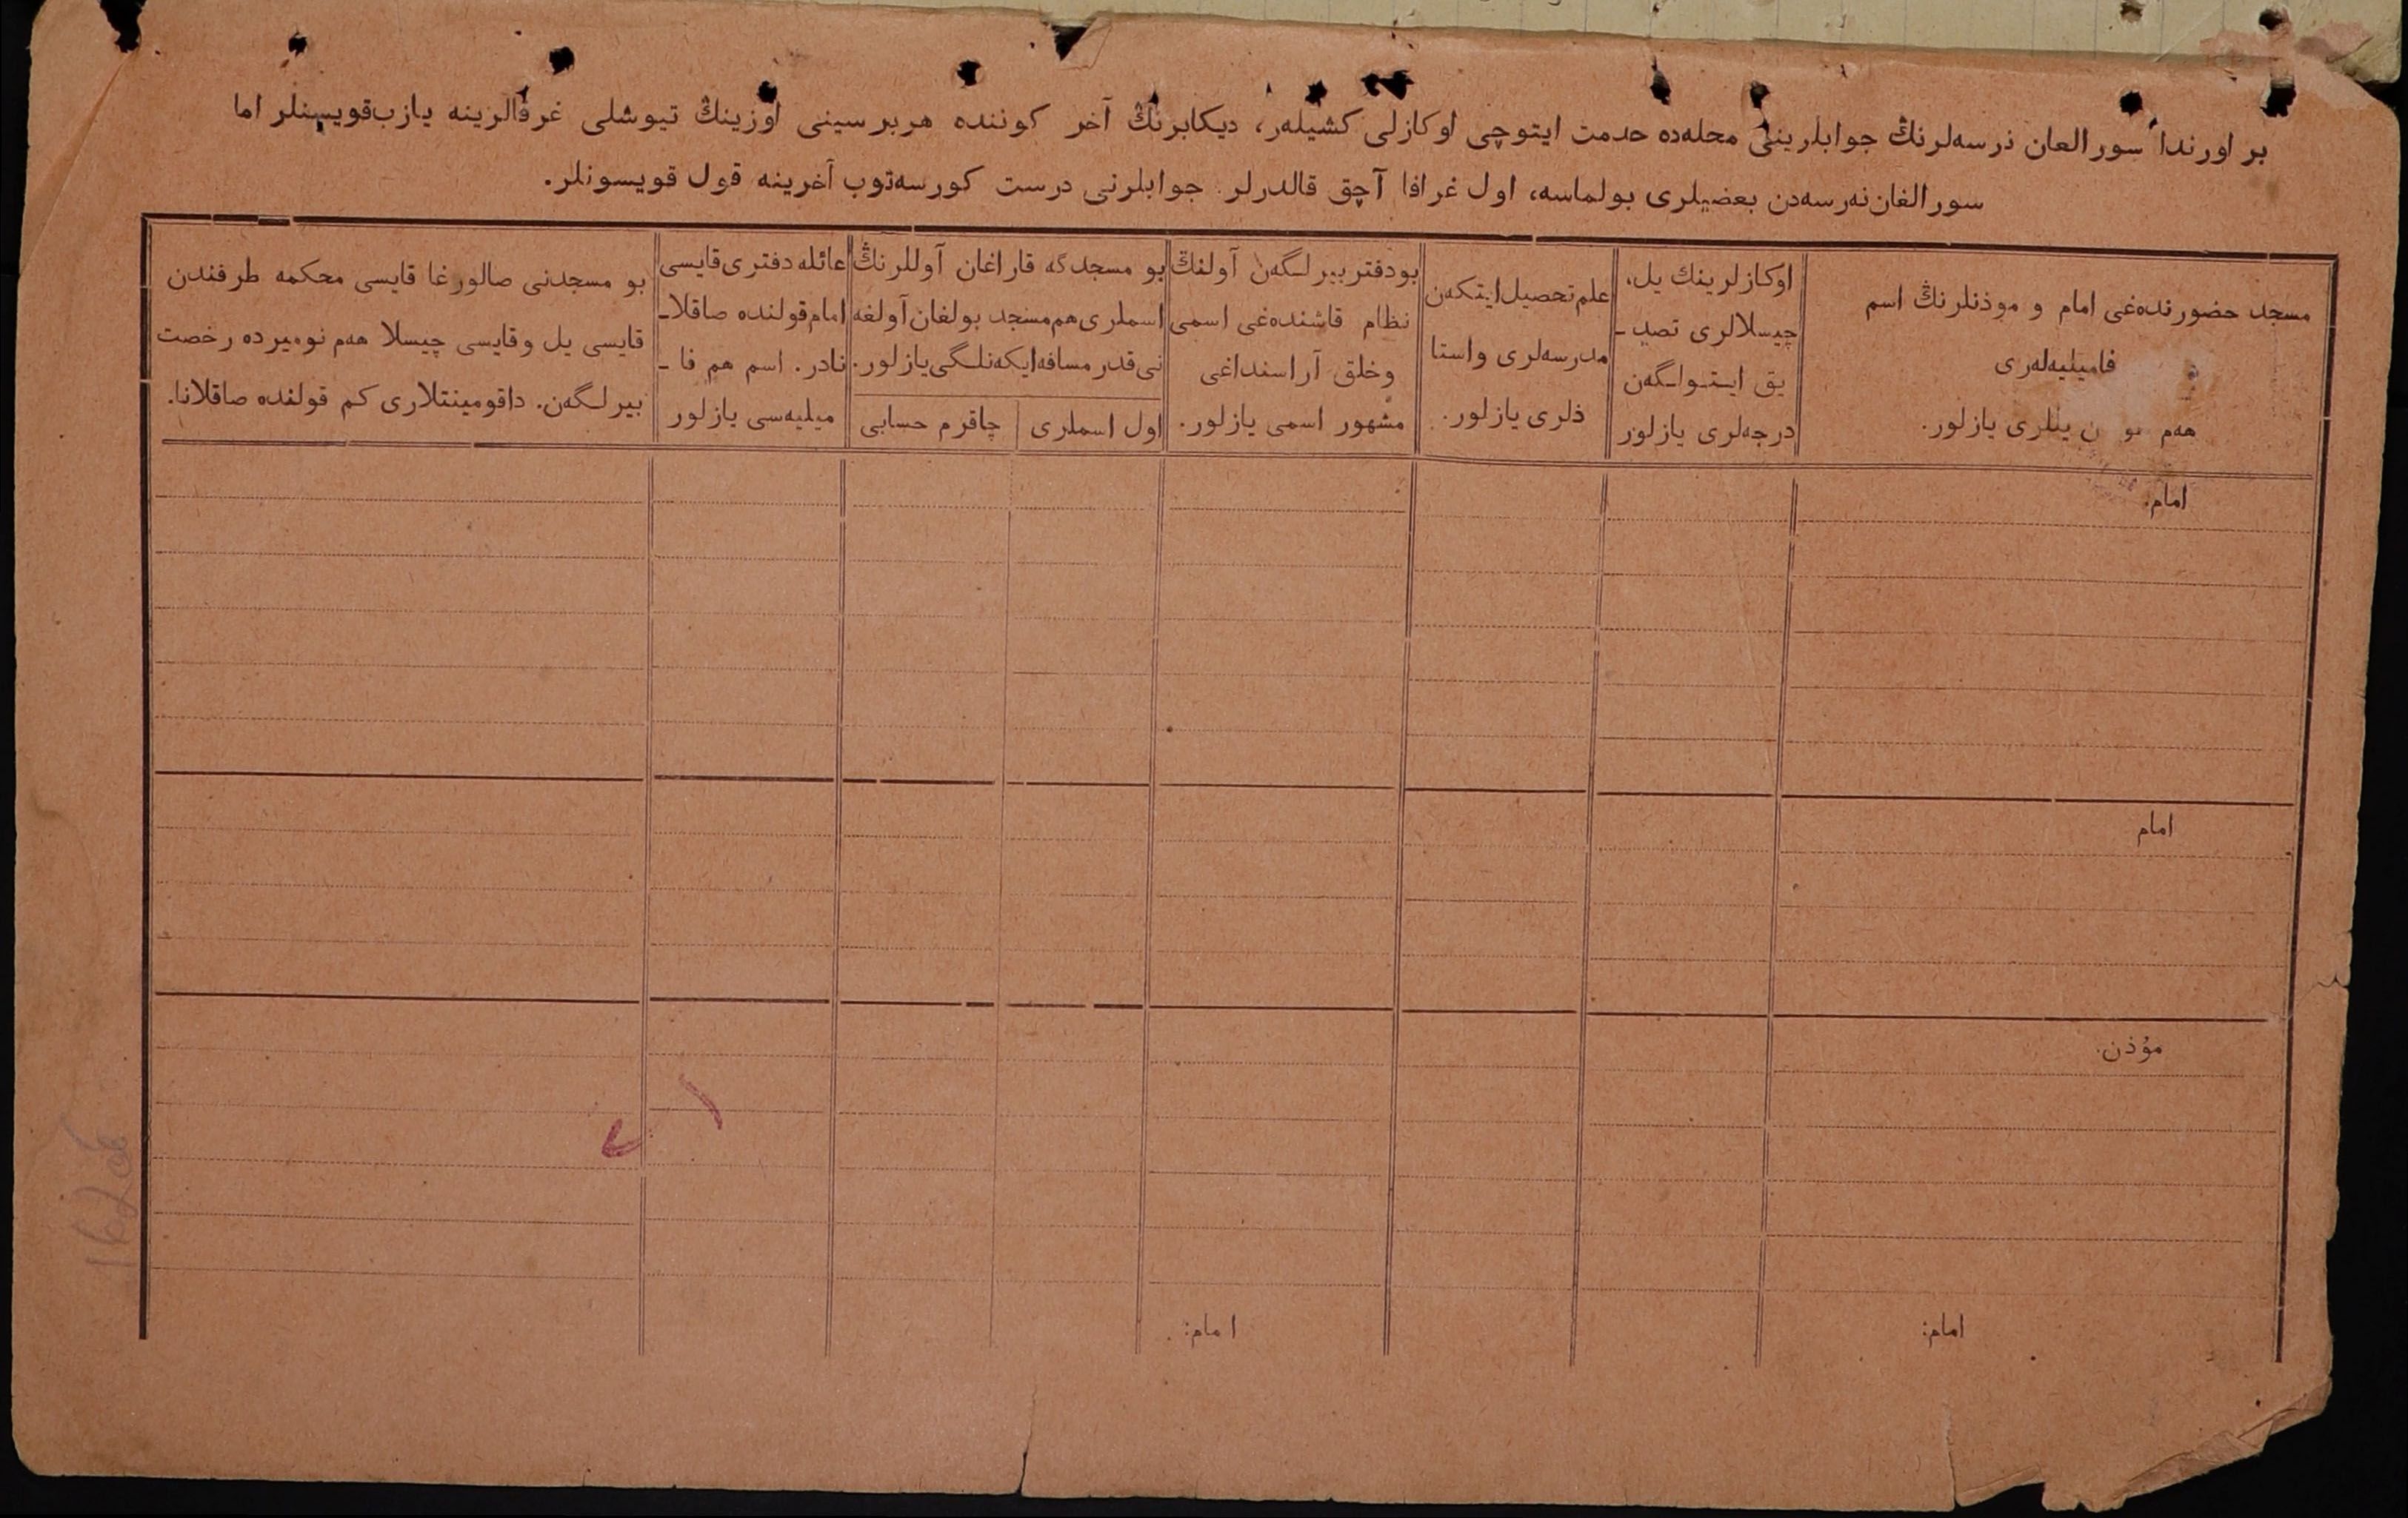 بر اورندا سورالعان نرسه‌لرنڭ جوابلرینی محله‌ده حدمت ایتوچی اوکازلی کشیله‌ر، دیکابرنڭ آخر کوننده هربرسینی اوزینڭ تیوشلی غرفالرینه یازب‌قویسنلر اما
سورالغان‌نه‌رسه‌دن بعضیلری بولماسه، اول غرافا آچق قالدرلر. جوابلرنی درست کورسه‌توب آخرینه قول قویسونلر.
مسجد حضورنده‌غی امام و موذنلرنڭ اسم
فامیلیه‌له‌ری
هه‌م ینلری یازلور.
اوکازلرینك یل،
چیسلالری تصد ـ
یق ایتولگه‌ن
درجه‌لری یازلور
علم‌تحصیل‌ایتکه‌ن
مدرسه‌لری واستا
ذلری یازلور.
بودفتر بیرلگه‌ن آولنڭ
نظام قاشنده‌غی اسمی
وخلق آراسنداغی
مشهور اسمی یازلور.
بو مسجدگه قاراغان آوللرنڭ
اسملری‌هم‌مسجد بولغان‌آولغه
نی‌قدر مسافه‌ایکه‌نلگی‌یازلور.
اول اسملری
چاقرم حسابی
عائله دفتری‌قایسی
امام‌قولنده صاقلاـ
نادر. اسم هم فا ـ
میلیه‌سی یازلور
بو مسجدنی صالورغا قایسی محکمه طرفندن
قایسی یل وقایسی چیسلا هه‌م نومیرده رخصت
بیرلگه‌ن. داقومینتلاری کم قولنده صاقلانا.
امام.
امام
مؤذن.
امام:
امام: